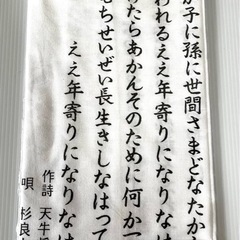 が子に孫に世間さまどなたか
われるええ年寄りになりなは
けたらあかんそのために何かつ
もちせいぜい長生きしなはって
ええ年寄りになりなは
作詩 天牛
唄 杉良